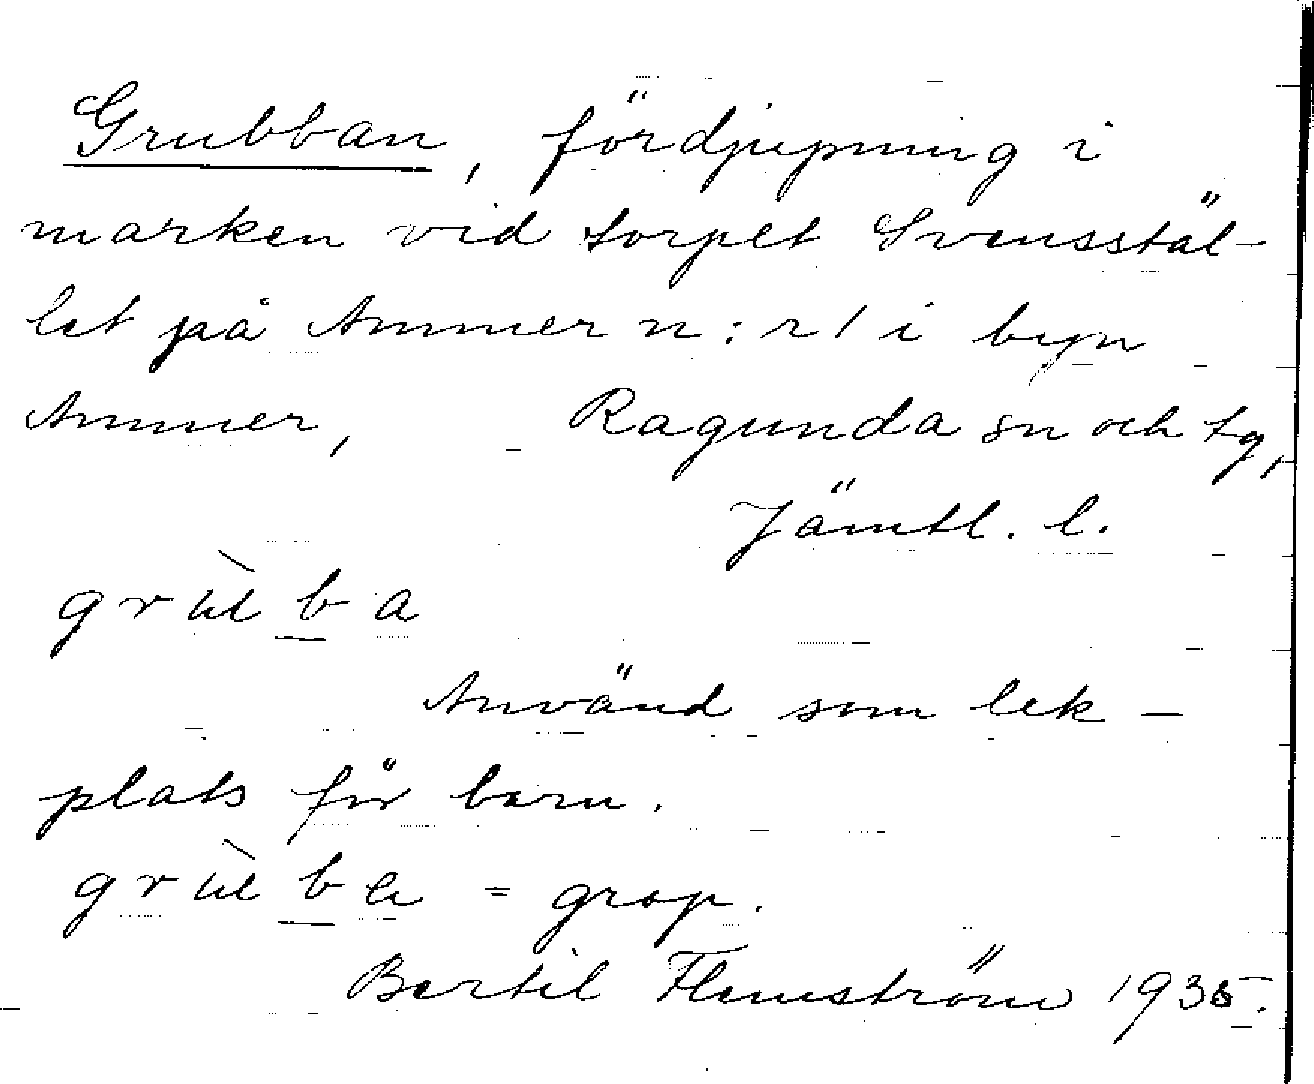 Grubban, fördjupning i
marken vid torpet Svensstäl-
let på Ammer n:r 1 i byn
Ammer, Ragunda sn och tg,
Jämtl. l.
grùb̲a
Använd som lek-
plats för barn.
grùb̲a = grop.
Bertil Flemström 1935.